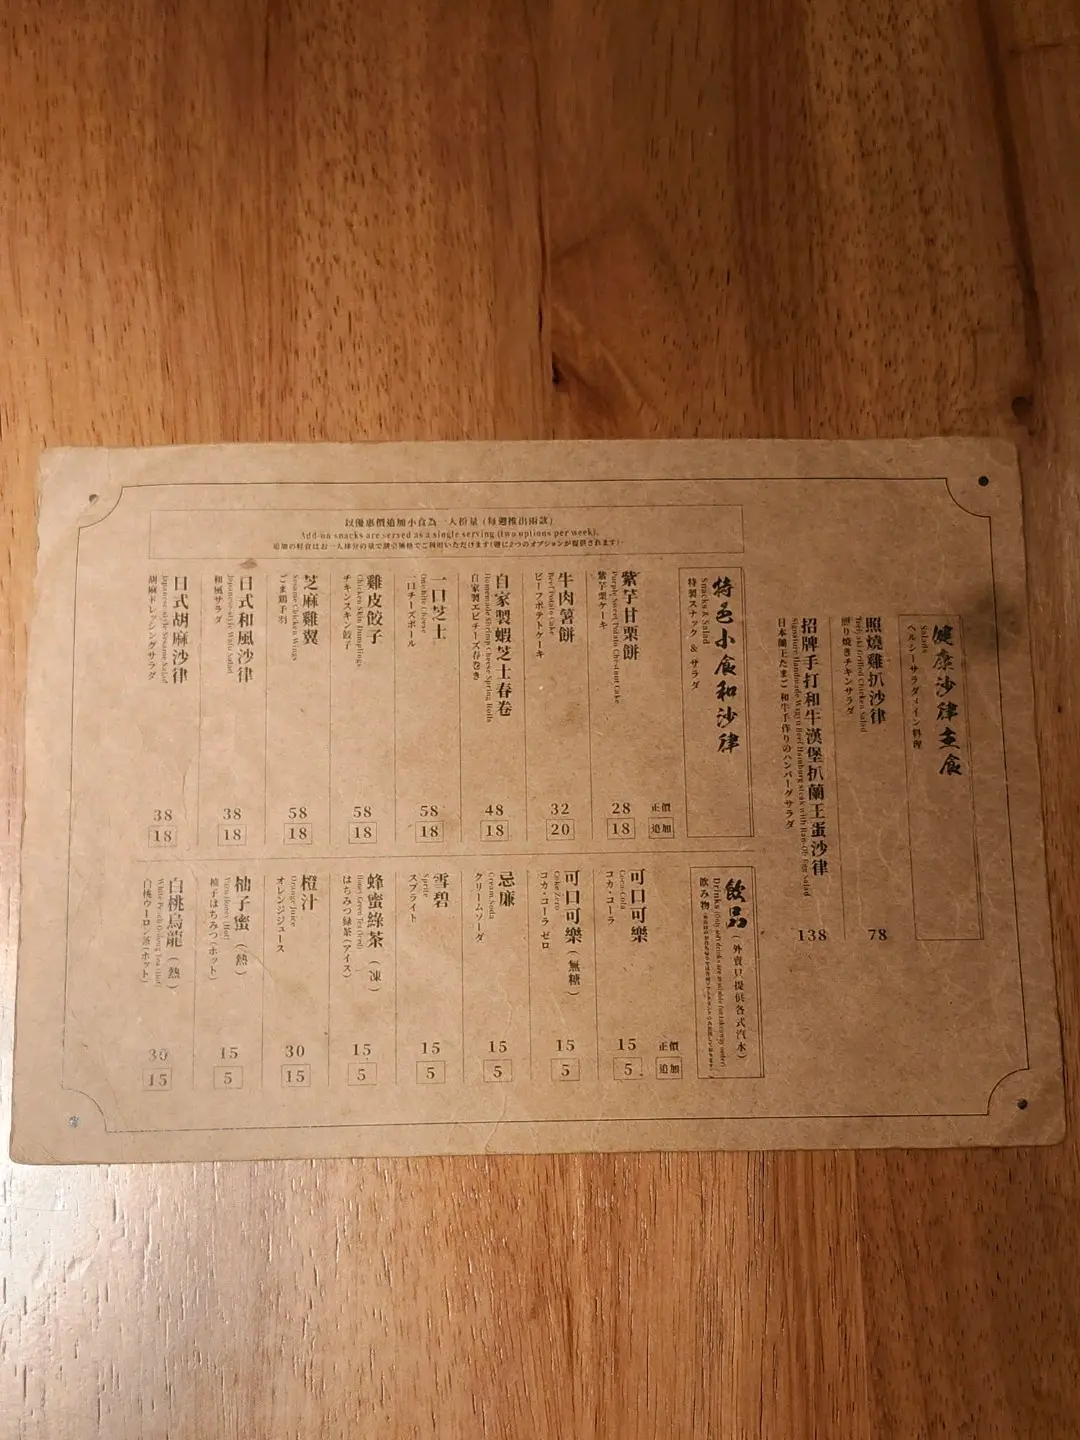 健康沙律主食
Salads
ヘルシーサラダメイン料理
照燒雞扒沙律
Teriyaki Grilled Chicken Salad
照り焼きチキンサラダ
78
招牌手打和牛漢堡扒蘭王蛋沙律
Signature Handmade Wagyu Beef Hamburg steak with Ran-Oh Egg Salad
日本蘭王たまご 和牛手作りのハンバーグサラダ
138
以優惠價追加小食為一人份量 (每週推出兩款)
Add-on snacks are served as a single serving (two options per week).
追加の軽食はお一人様分の量で割引価格でご利用いただけます(週に2つのオプションが提供されます)。
特色小食和沙律
Snacks & Salad
特製スナック & サラダ
正價
追加
紫芋甘栗餅
Purple Sweet Potato Chestnut Cake
紫芋栗ケーキ
28
18
牛肉薯餅
Beef Potato Cake
ビーフポテトケーキ
32
20
自家製蝦芝士春卷
Homemade Shrimp Cheese Spring Rolls
自家製エビチーズ春巻き
48
18
一口芝士
One-bite Cheese
一口チーズボール
58
18
雞皮餃子
Chicken Skin Dumplings
チキンスキン餃子
58
18
芝麻雞翼
Sesame Chicken Wings
ごま鶏手羽
58
18
日式和風沙律
Japanese-style Wafu Salad
和風サラダ
38
18
日式胡麻沙律
Japanese-style Sesame Salad
胡麻ドレッシングサラダ
38
18
飲品 (外賣只提供各式汽水)
Drinks (Only soft drinks are available for takeaway order)
飲み物
正價
追加
可口可樂
Coca-Cola
コカ・コーラ
15
5
可口可樂 (無糖)
Coke Zero
コカ・コーラ ゼロ
15
5
忌廉
Cream Soda
クリームソーダ
15
5
雪碧
Sprite
スプライト
15
5
蜂蜜綠茶 (凍)
Honey Green Tea (Iced)
はちみつ緑茶 (アイス)
15
5
橙汁
Orange Juice
オレンジジュース
30
15
柚子蜜 (熱)
Yuzu Honey (Hot)
柚子はちみつ (ホット)
15
5
白桃烏龍 (熱)
White Peach Oolong Tea (Hot)
白桃ウーロン茶 (ホット)
30
15